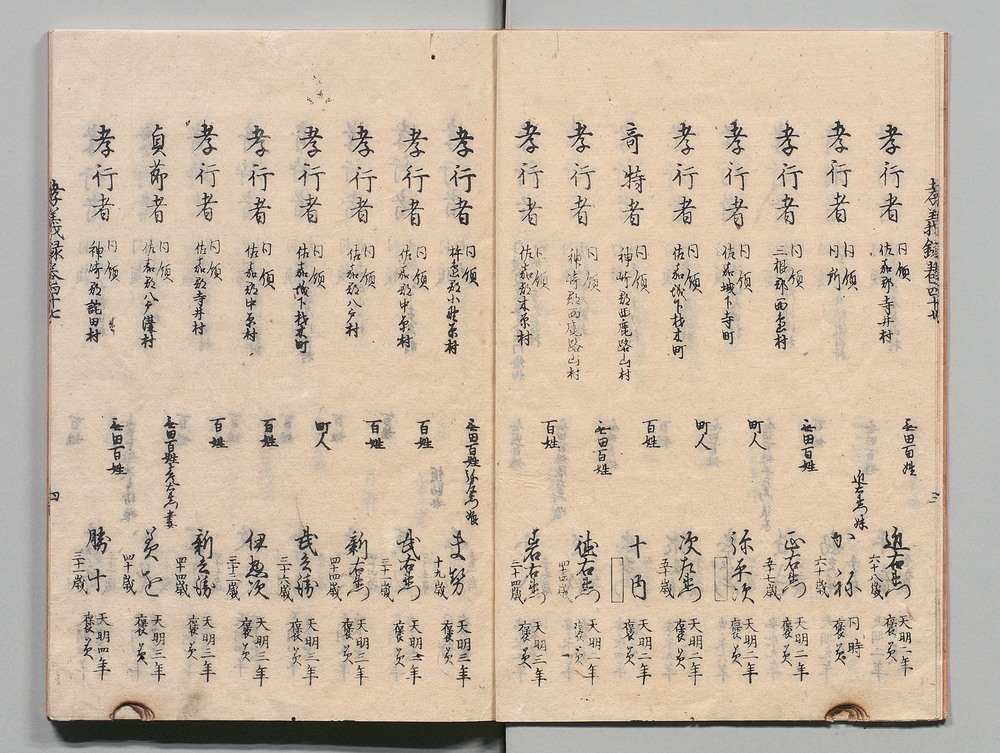 孝行者 同領 佐嘉郡寺井村 無田百姓 近右衛門 六十八歳 天明二年 褒美
孝行者 同領 同所 近右衛門妹 かね 六十歳 同時 褒美
孝行者 同領 三根郡西島村 無田百姓 正右衛門 五十七歳 天明二年 褒美
孝行者 同領 佐嘉城下寺町 町人 弥平次 天明二年 褒美
孝行者 同領 佐嘉城下材木町 町人 次左衛門 五十歳 天明二年 褒美
奇特者 同領 神崎郡西鹿路山村 百姓 十内 天明二年 褒美
孝行者 同領 神崎郡西鹿路山村 無田百姓 徳右衛門 四十四歳 天明二年 褒美
孝行者 同領 佐嘉郡木原村 百姓 岩右衛門 三十四歳 天明三年 褒美
孝行者 同領 村 無田百姓 娘 十九歳 天明三年 褒美
孝行者 同領 佐嘉郡中原村 百姓 武右衛門 天明三年 褒美
孝行者 同領 佐嘉郡八戸村 百姓 新右衛門 四十四歳 天明三年 褒美
孝行者 同領 佐嘉城下材木町 町人 武兵衛 三十六歳 天明三年 褒美
孝行者 同領 佐嘉郡中原村 百姓 伊惣次 三十三歳 天明三年 褒美
孝行者 同領 佐嘉郡寺井村 百姓 新兵衛 四十四歳 天明三年 褒美
貞節者 同領 佐嘉郡八戸溝村 無田百姓 妻 四十歳 天明三年 褒美
孝行者 同領 神崎郡詫田村 無田百姓 勝十 三十二歳 天明四年 褒美
孝義録巻四十七
四